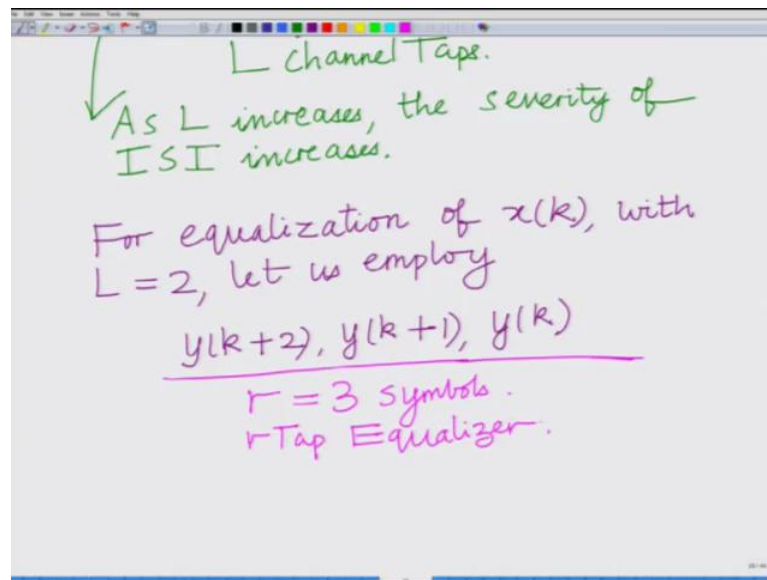 L Channel Taps.
As L increases, the severity of
ISI increases.
For equalization of x(k), with
L = 2, let us employ
y(k+2), y(k+1), y(k)
r = 3 symbols.
r Tap Equalizer.